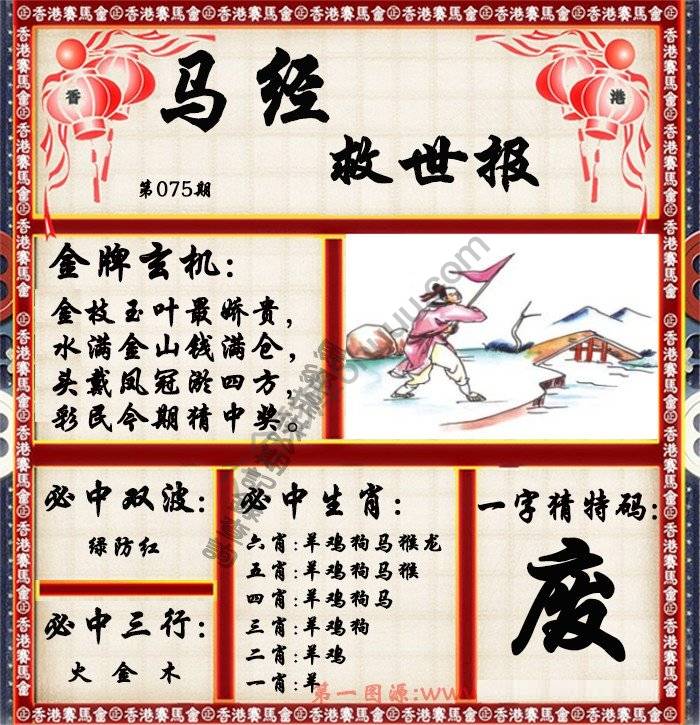 香港
马经
救世报
第075期
金牌玄机:
金枝玉叶最娇贵,
水满金山钱满仓,
头戴凤冠游四方,
彩民今期猜中奖。
必中双波:
绿防红
必中三行:
火金木
必中生肖:
六肖:羊鸡狗马猴龙
五肖:羊鸡狗马猴
四肖:羊鸡狗马
三肖:羊鸡狗
二肖:羊鸡
一肖:羊
一字猜特码:
废
第一图源:www
香港賽馬會